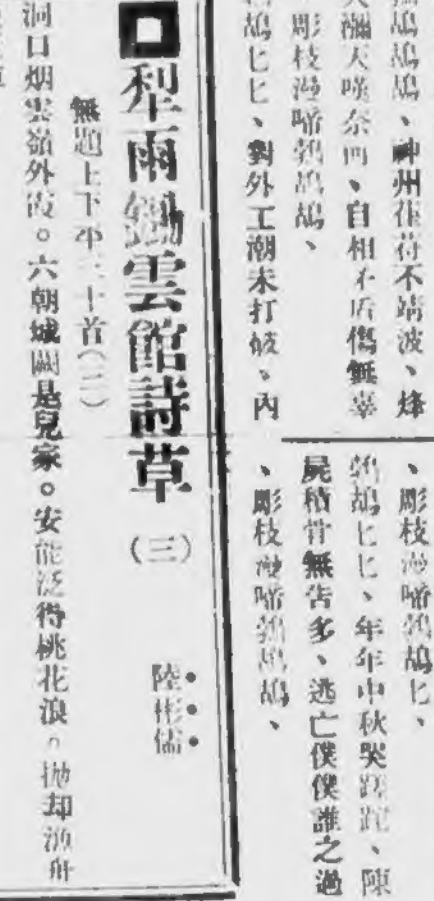 鴣鴣鴣、神州萑苻不靖波、烽
天嘆奈何、自相矛盾傷無辜
彫枝漫啼鵓鴣鴣、
鴣匕匕、對外工潮未打破、內
、彫枝漫啼鵓鴣匕、
鵓鴣匕匕、年年中秋哭蹉跎、陳
屍積骨無告多、逃亡僕僕誰之過
、彫枝漫啼鵓鴣鴣、
犁雨鋤雲館詩草(三)
陸彬儒
無題上下平三十首(二)
洞口烟雲嶺外霞。六朝城闕是兒家。安能泛得桃花浪。拋却漁舟